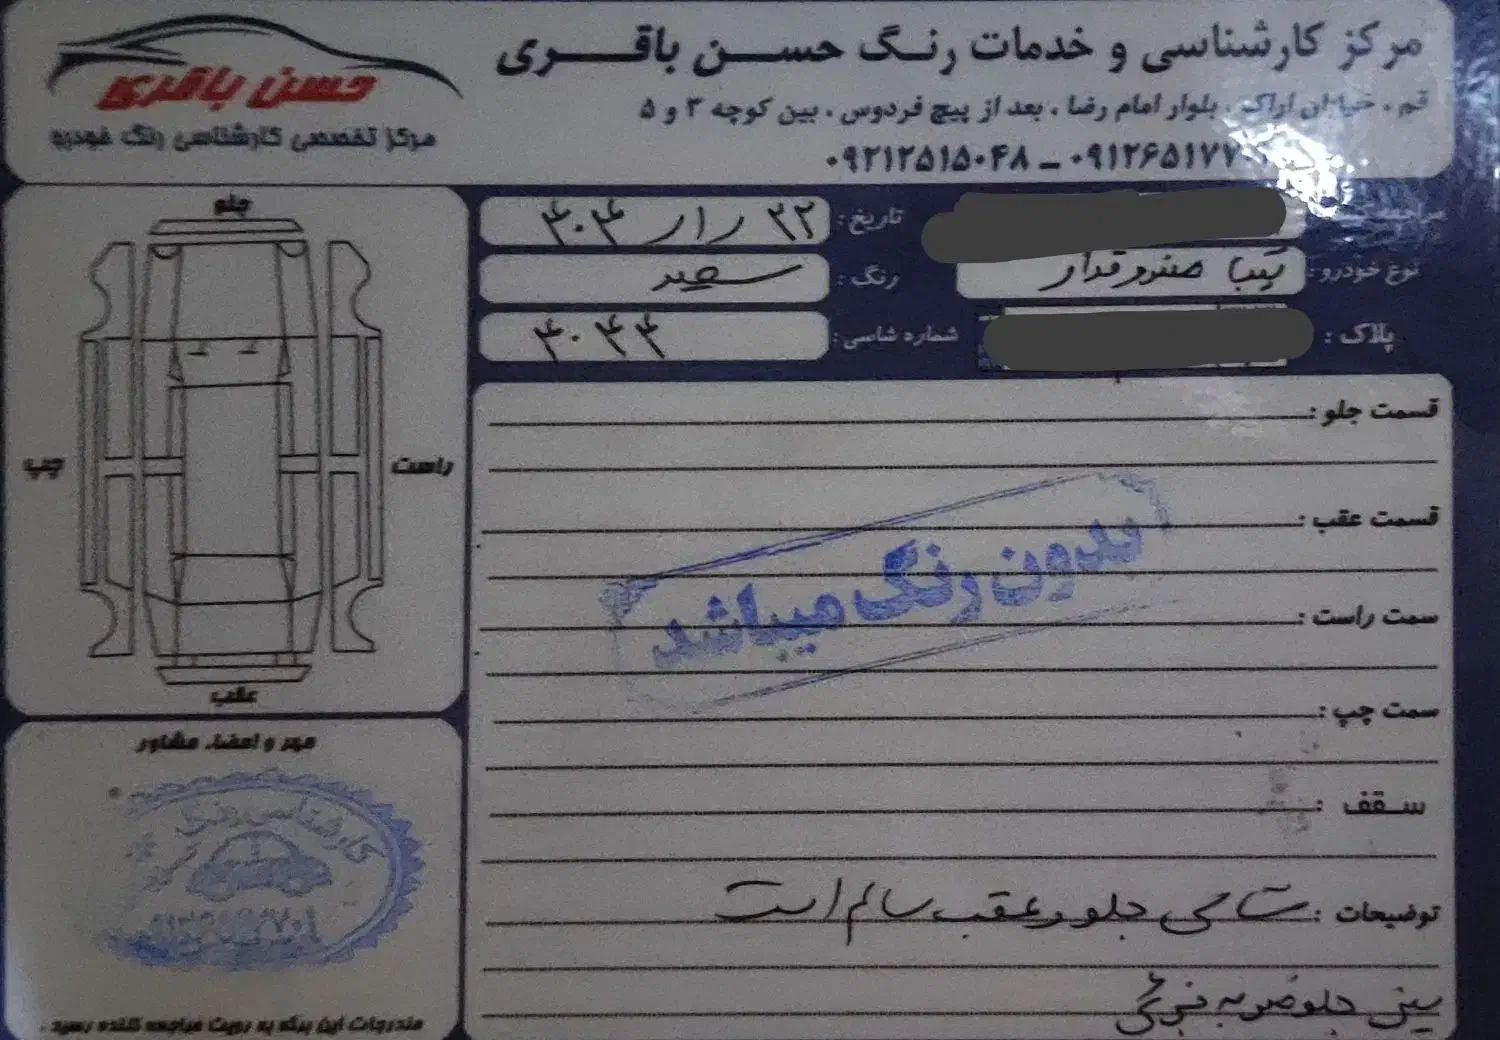 حسن باقری
مرکز تخصصی کارشناسی رنگ خودرو
مرکز کارشناسی و خدمات رنگ حسن باقری
قم ، خیابان اراک ، بلوار امام رضا ، بعد از پیچ فردوس ، بین کوچه ۳ و ۵
۰۹۲۱۲۵۱۵۰۴۸ ـ ۰۹۱۲۶۵۱۷۷
تاریخ : ۲۲ ر۱ر ۴۰۴
نوع خودرو : تیبا صندوقدار
رنگ : سفید
پلاک :
شماره شاسی : ۴۰۴۴
جلو
چپ
راست
عقب
قسمت جلو :
قسمت عقب :
بدون رنگ میباشد
سمت راست :
سمت چپ :
سقف :
توضیحات : شاسی جلو و عقب سالم است
سینی جلو ضربه
مهر و امضاء مشاور
کارشناسی رنگ
مندرجات این برگه به رویت مراجعه کننده رسید .